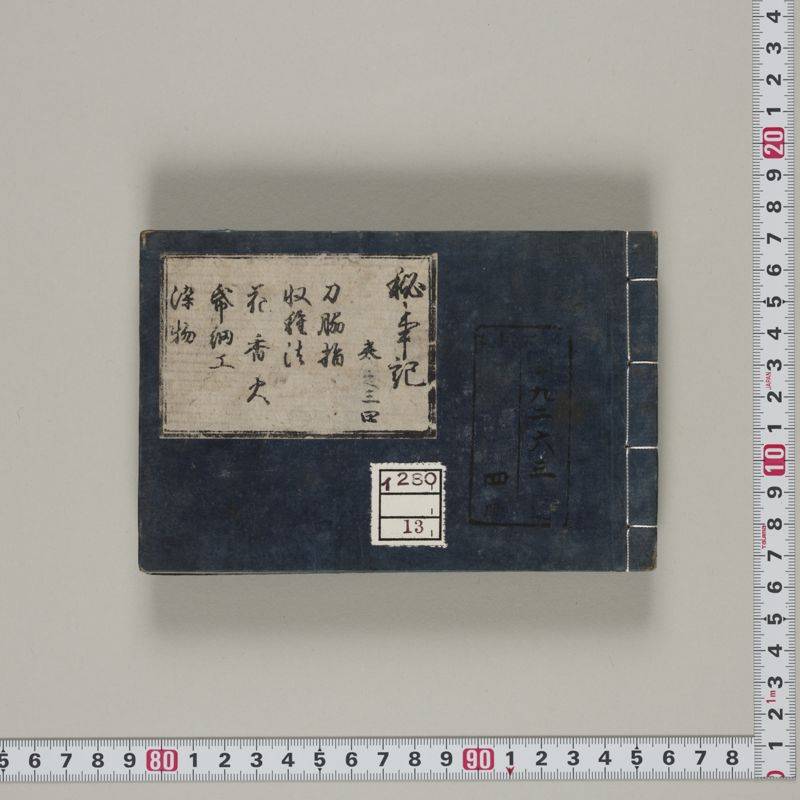 秘事記
巻之三四
刀脇指
収種法
花 香 火
幣網工
染物
九二六三
四
イ280
13
4
3
2
1
20
9
8
7
6
5
4
3
2
JAPAN
1
10
9
8
7
6
5
4
3
1m
2
1
5 6 7 8 9 80 1 2 3 4 5 6 7 8 9 90 1 2 3 4 5 6 7 8